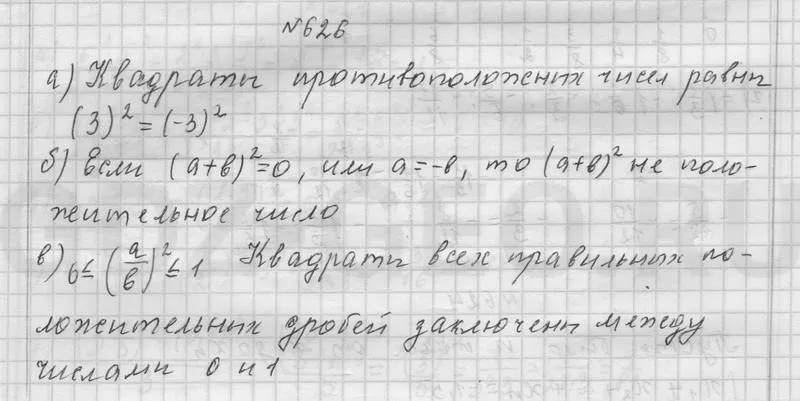 №626
а) Квадраты противоположных чисел равны
(3)² = (-3)²
б) Если (а+в)²=0, или а=-в, то (а+в)² не поло-
жительное число
в) 0≤(а/в)²≤1 Квадраты всех правильных по-
ложительных дробей заключены между
числами 0 и 1
№624